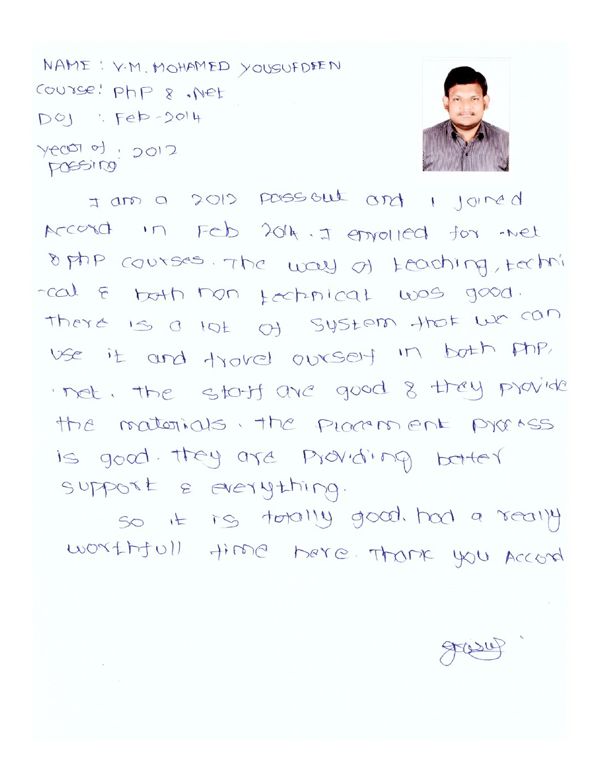 NAME : V.M. MOHAMED YOUSUFDEEN
Course: PhP & .Net
DOJ : Feb-2014
Year of : 2012
passing
I am a 2012 passout and I joined
Accord in Feb 2014. I enrolled for .Net
& php courses. The way of teaching, techni
-cal & both non technical was good.
There is a lot of system that we can
use it and travel ourself in both php,
.net. The staff are good & they provide
the materials. The placement process
is good. They are providing better
support & everything.
So it is totally good. had a really
worthfull time here. Thank you Accord